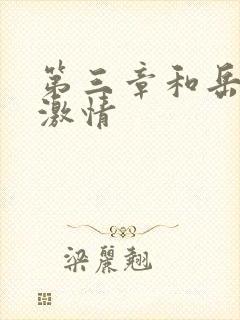 第三章和岳
激情
梁丽翘